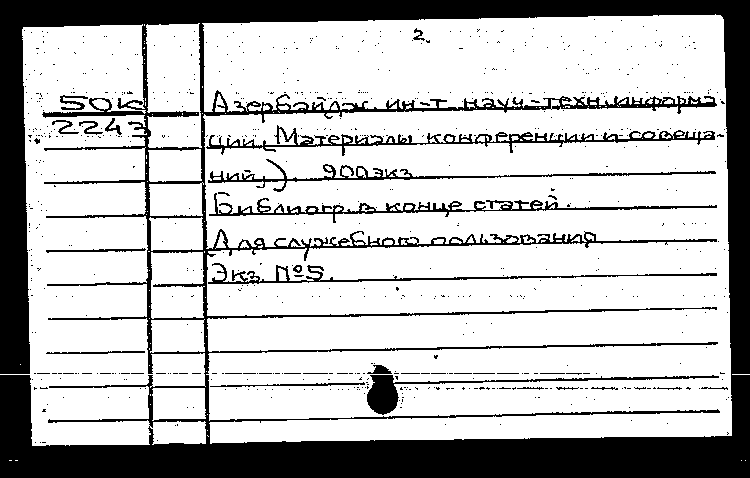 2.
50к
2243
Азербайдж. ин-т науч.-техн.информа-
ции. (Материалы конференции и совеща-
ний,). 900экз
Библиогр. в конце статей.
Для служебного пользования
Экз. №5.